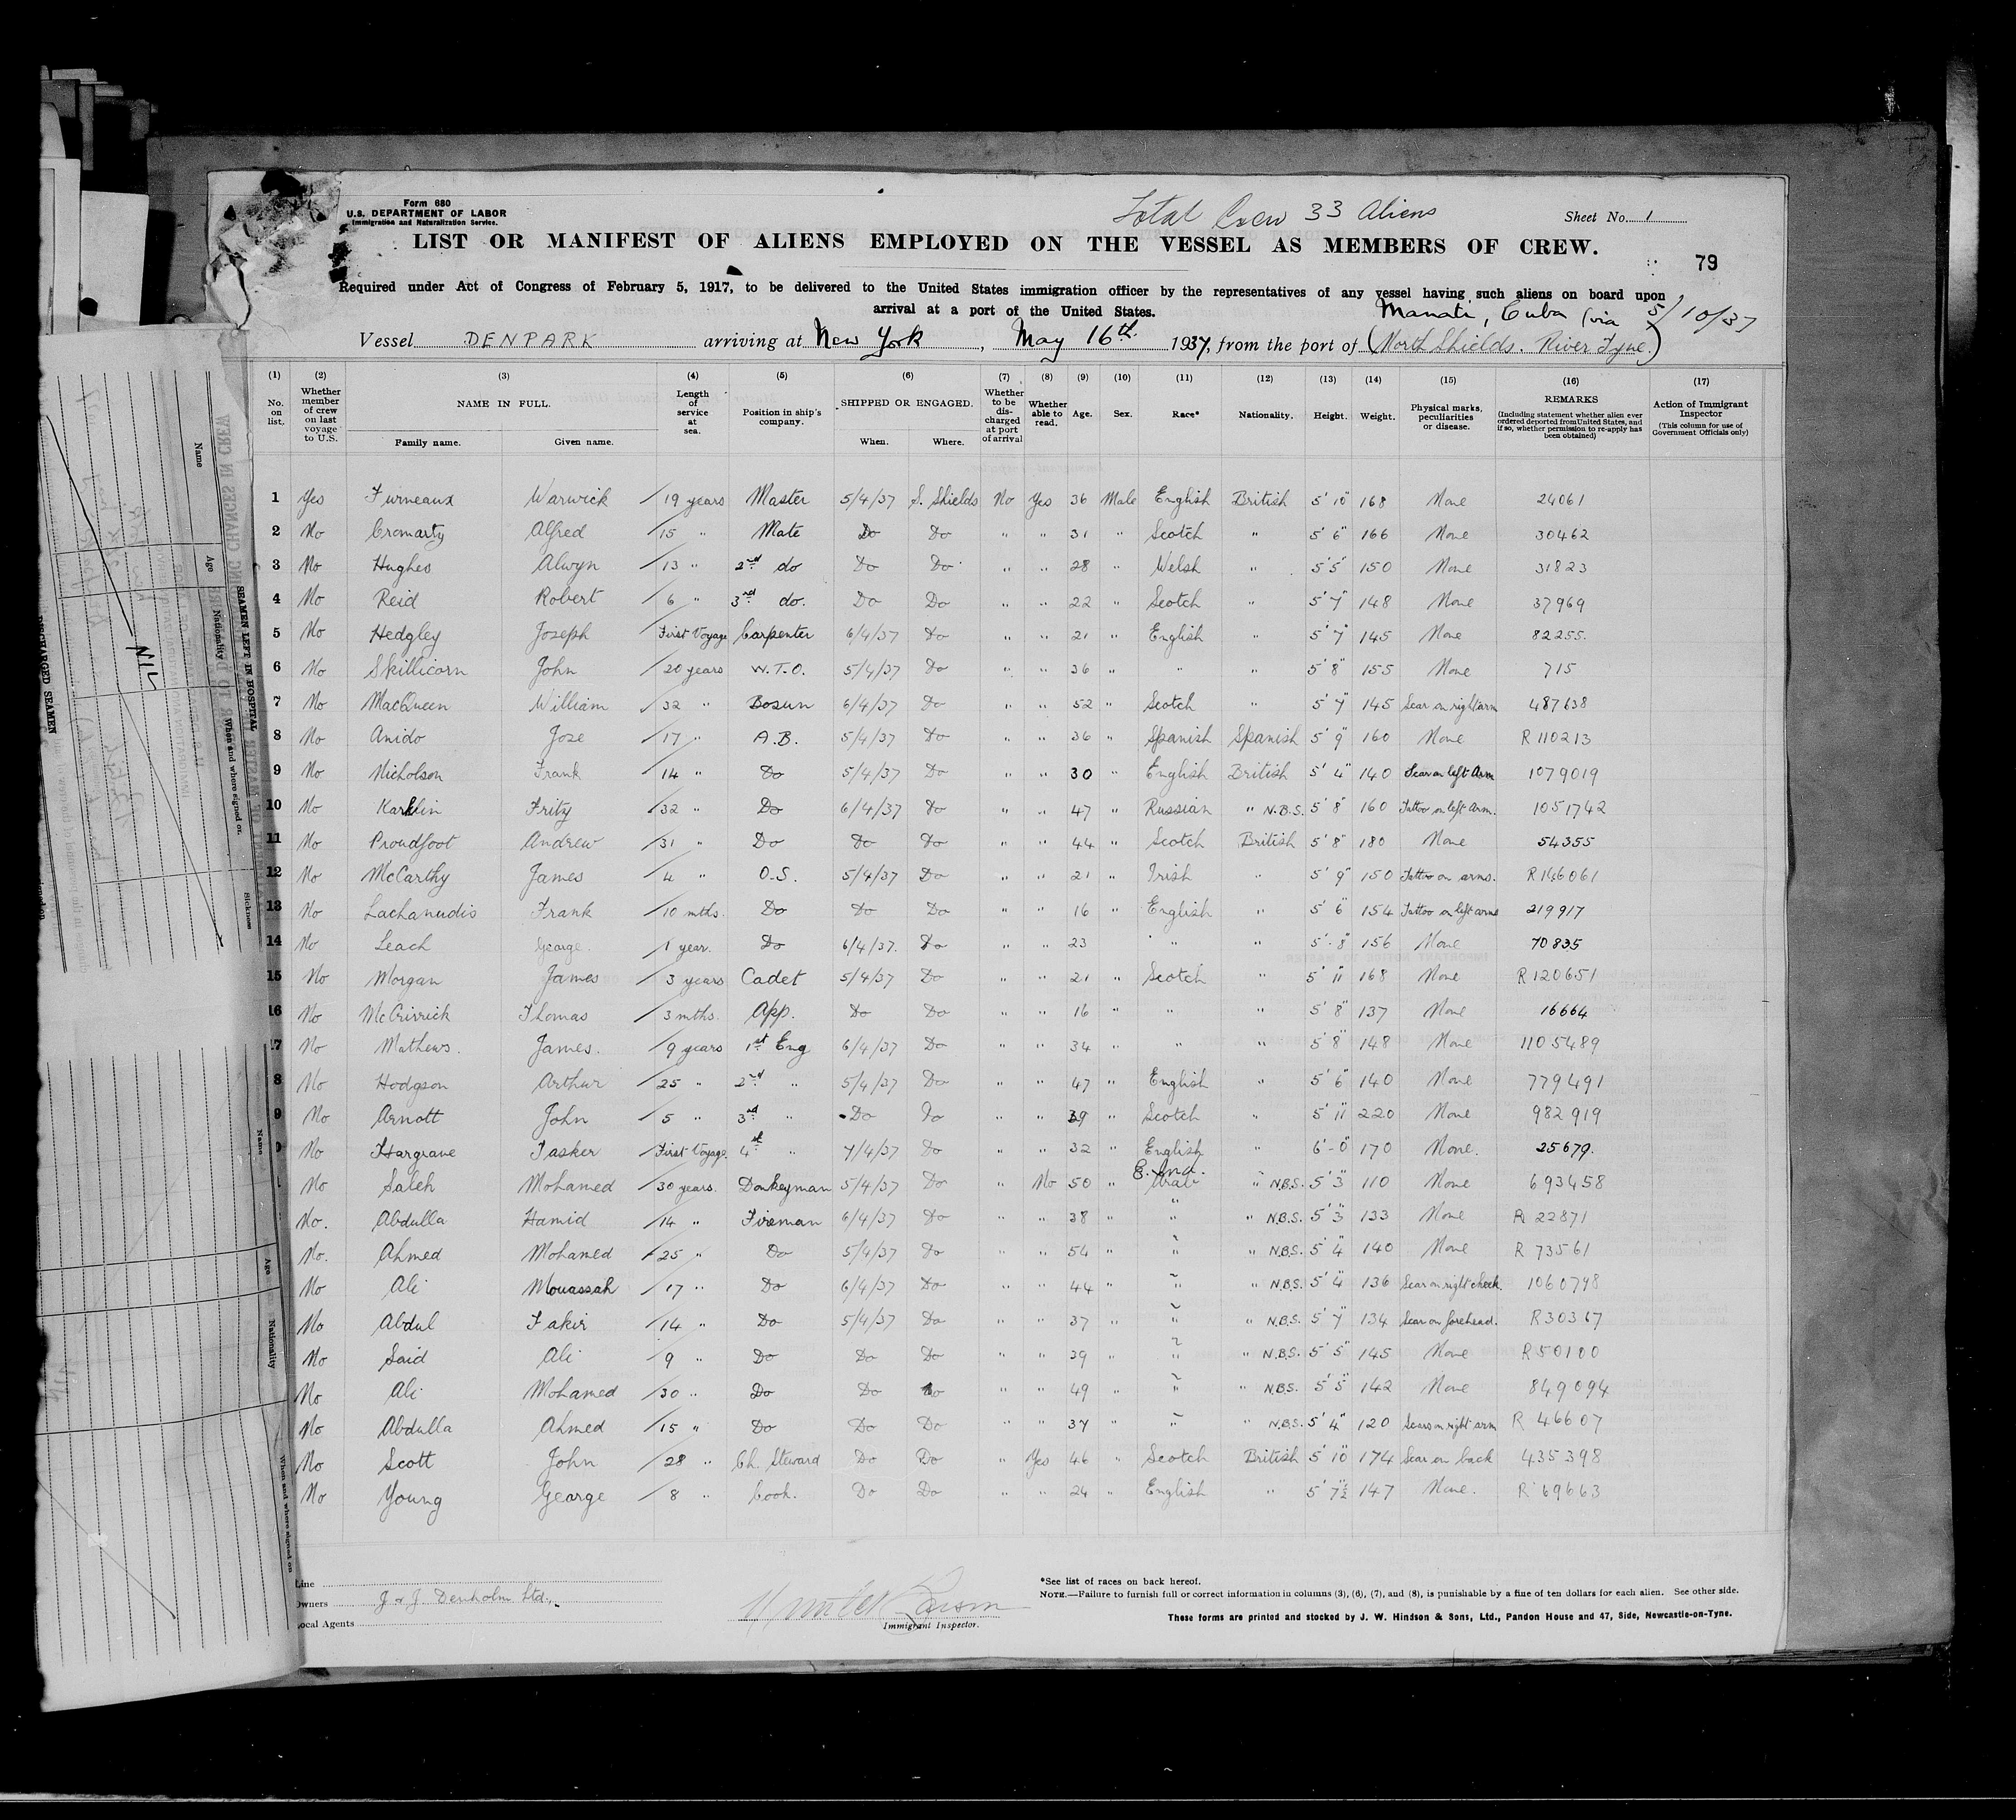 Form 680
U.S. DEPARTMENT OF LABOR
Immigration and Naturalization Service.
Total Crew 33 Aliens
Sheet No. 1
LIST OR MANIFEST OF ALIENS EMPLOYED ON THE VESSEL AS MEMBERS OF CREW.
79
Required under Act of Congress of February 5, 1917, to be delivered to the United States immigration officer by the representatives of any vessel having such aliens on board upon
arrival at a port of the United States.
Manati, Cuba (via 5/10/37
Vessel DENPARK arriving at New York, May 16th 1937, from the port of (North Shields. River Tyne.)
(1) (2) (3) (4) (5) (6) (7) (8) (9) (10) (11) (12) (13) (14) (15) (16) (17)
No. on list. Whether member of crew on last voyage to U.S. NAME IN FULL. Family name. Given name. Length of service at sea. Position in ship's company. SHIPPED OR ENGAGED. When. Where. Whether to be discharged at port of arrival Whether able to read. Age. Sex. Race* Nationality. Height. Weight. Physical marks, peculiarities or disease. REMARKS (Including statement whether alien ever ordered deported from United States, and if so, whether permission to re-apply has been obtained) Action of Immigrant Inspector (This column for use of Government Officials only)
1 Yes Furneaux Warwick 19 years Master 5/4/37 S. Shields No Yes 36 Male English British 5' 10" 168 None 24061
2 No Cromarty Alfred 15 " Mate Do Do " " 31 " Scotch " 5' 6" 166 None 30462
3 No Hughes Alwyn 13 " 2nd do Do Do " " 28 " Welsh " 5' 5" 150 None 31823
4 No Reid Robert 6 " 3rd do. Do Do " " 22 " Scotch " 5' 7" 148 None 37969
5 No Hedgley Joseph First Voyage Carpenter 6/4/37 Do " " 21 " English " 5' 7" 145 None 82255.
6 No Skillicorn John 20 years W.T.O. 5/4/37 Do " " 36 " " " 5' 8" 155 None 715
7 No MacQueen William 32 " Bosun 6/4/37 Do " " 52 " Scotch " 5' 7" 145 Scar on right arm 487638
8 No Anido Jose 17 " A.B. 5/4/37 Do " " 36 " Spanish Spanish 5' 9" 160 None R 110213
9 No Nicholson Frank 14 " Do 5/4/37 Do " " 30 " English British 5' 4" 140 Scar on left Arm 1079019
10 No Karklin Fritz 32 " Do 6/4/37 Do " " 47 " Russian " N.B.S. 5' 8" 160 Tattoo on left Arm. 1051742
11 No Proudfoot Andrew 31 " Do Do Do " " 44 " Scotch British 5' 8" 180 None 54355
12 No McCarthy James 4 " O.S. 5/4/37 Do " " 21 " Irish " 5' 9" 150 Tattoo on arms. R146061
13 No Lachanudis Frank 10 mths. Do Do Do " " 16 " English " 5' 6" 154 Tattoo on left arms 219917
14 No Leach George. 1 year. Do 6/4/37. Do " " 23 " " 5'-8" 156 None 70835
15 No Morgan James 3 years Cadet 5/4/37 Do " " 21 " Scotch " 5' 11" 168 None R120651
16 No McCrirrick Thomas 3 mths. App. Do Do " " 16 " " " 5' 8" 137 None 16664
17 No Mathews. James. 9 years 1st Eng 6/4/37 Do " " 34 " " " 5' 8" 148 None 1105489
8 No Hodgson Arthur 25 " 2nd " 5/4/37 Do " " 47 " English " 5' 6" 140 None 779491
9 No Arnott John 5 " 3rd " Do Do " " 39 " Scotch " 5' 11" 220 None 982919
No Hargrave Tasker First Voyage. 4th " 7/4/37 Do " " 32 " English " 6'-0" 170 None. 25679.
No Saleh Mohamed 30 years. Donkeyman 5/4/37 Do " No 50 " E. Ind. Arab " N.B.S. 5' 3" 110 None 693458
No. Abdulla Hamid 14 " Fireman 6/4/37 Do " " 38 " " " N.B.S. 5' 3" 133 None R 22871
No. Ahmed Mohamed 25 " Do 5/4/37 Do " " 54 " " " N.B.S. 5' 4" 140 None R 73561
No Ali Mouassah 17 " Do 6/4/37 Do " " 44 " " " N.B.S. 5' 4" 136 Scar on right cheek. 1060798
No Abdul Fakir 14 " Do 5/4/37 Do " " 37 " " " N.B.S. 5' 7" 134 Scar on forehead. R30367
No Said Ali 9 " Do Do Do " " 39 " " " N.B.S. 5' 5" 145 None R50100
No Ali Mohamed 30 " Do Do Do " " 49 " " " N.B.S. 5' 5" 142 None 849094
No Abdulla Ahmed 15 " Do Do Do " " 37 " " " N.B.S. 5' 4" 120 Scars on right arm R 46607
No Scott John 28 " Ch. Steward Do Do " Yes 46 " Scotch British 5' 10" 174 Scar on back 435398
No Young George 8 " Cook. Do Do " " 24 " English " 5' 7½" 147 None. R 69663
Line
Owners J & J. Denholm Ltd.,
Local Agents
Immigrant Inspector.
*See list of races on back hereof.
NOTE.—Failure to furnish full or correct information in columns (3), (6), (7), and (8), is punishable by a fine of ten dollars for each alien. See other side.
These forms are printed and stocked by J. W. Hindson & Sons, Ltd., Pandon House and 47, Side, Newcastle-on-Tyne.
Name
Age
Nationality
When and where signed on
SEAMEN LEFT IN HOSPITAL
Sickness
NIL
DISCHARGED SEAMEN
Name
Age
Nationality
When and where signed on